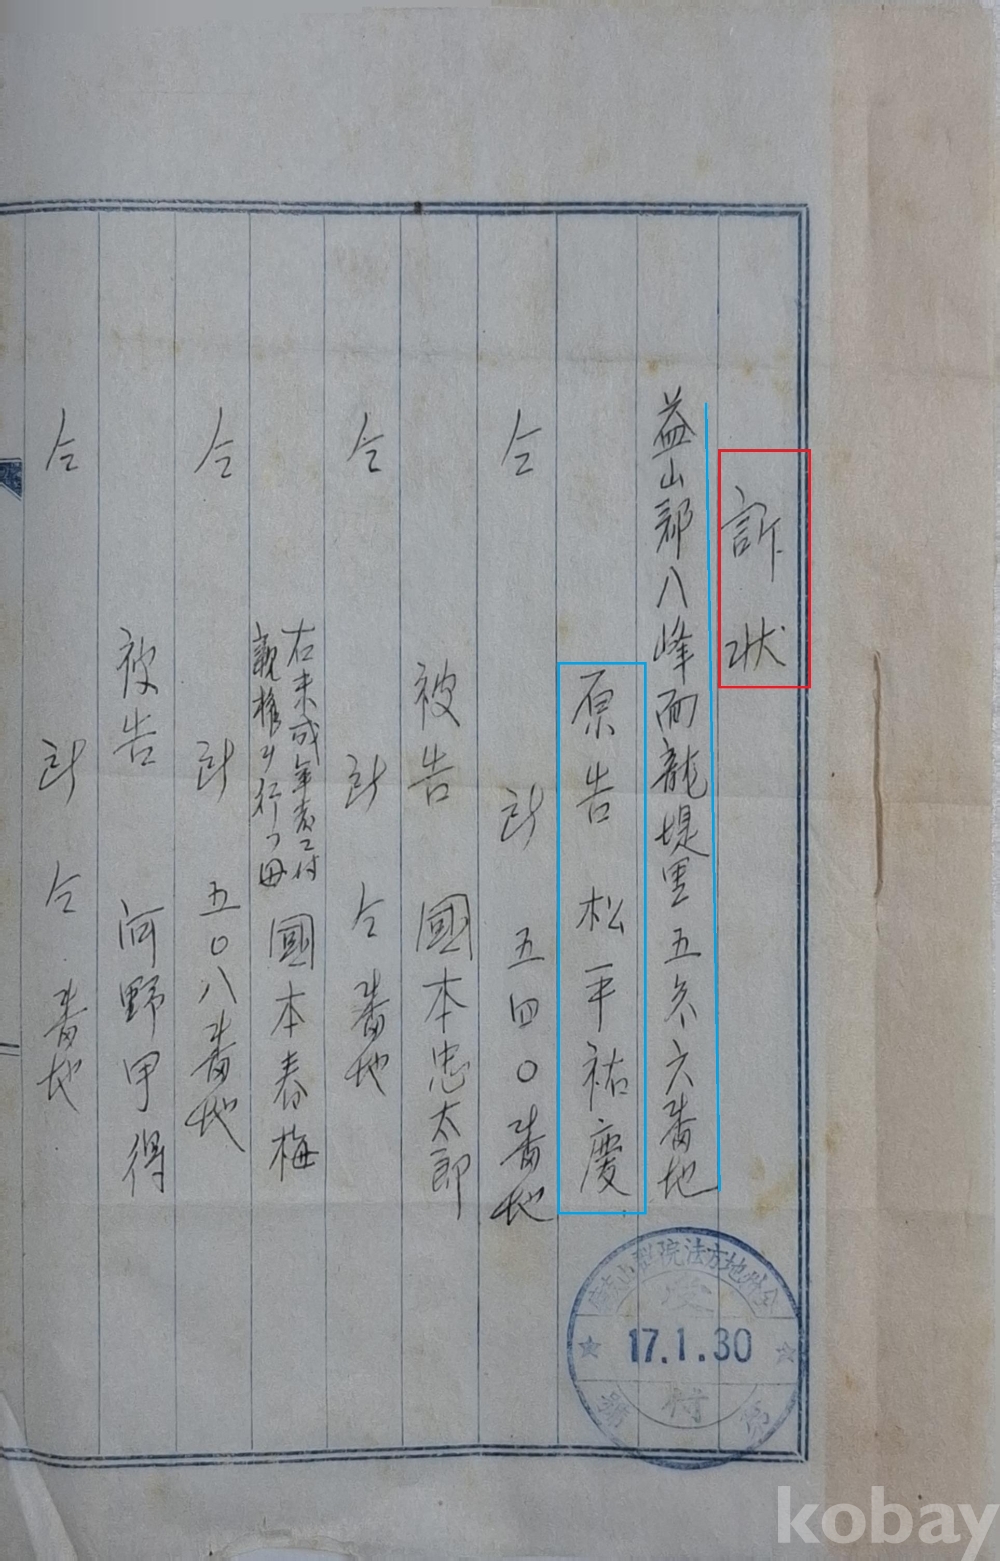 訴状
益山郡八峰面龍堤里五六六番地
原告 松平祐慶
仝 郡 五四〇番地
被告 國本忠太郎
仝 郡 仝番地
右未成年者ニ付
親権ヲ行フ母 國本春梅
仝 郡 五〇八番地
被告 河野甲得
仝 郡 仝番地
全州地方法院裡里支廳
受
17.1.30
付
第 號
kobay